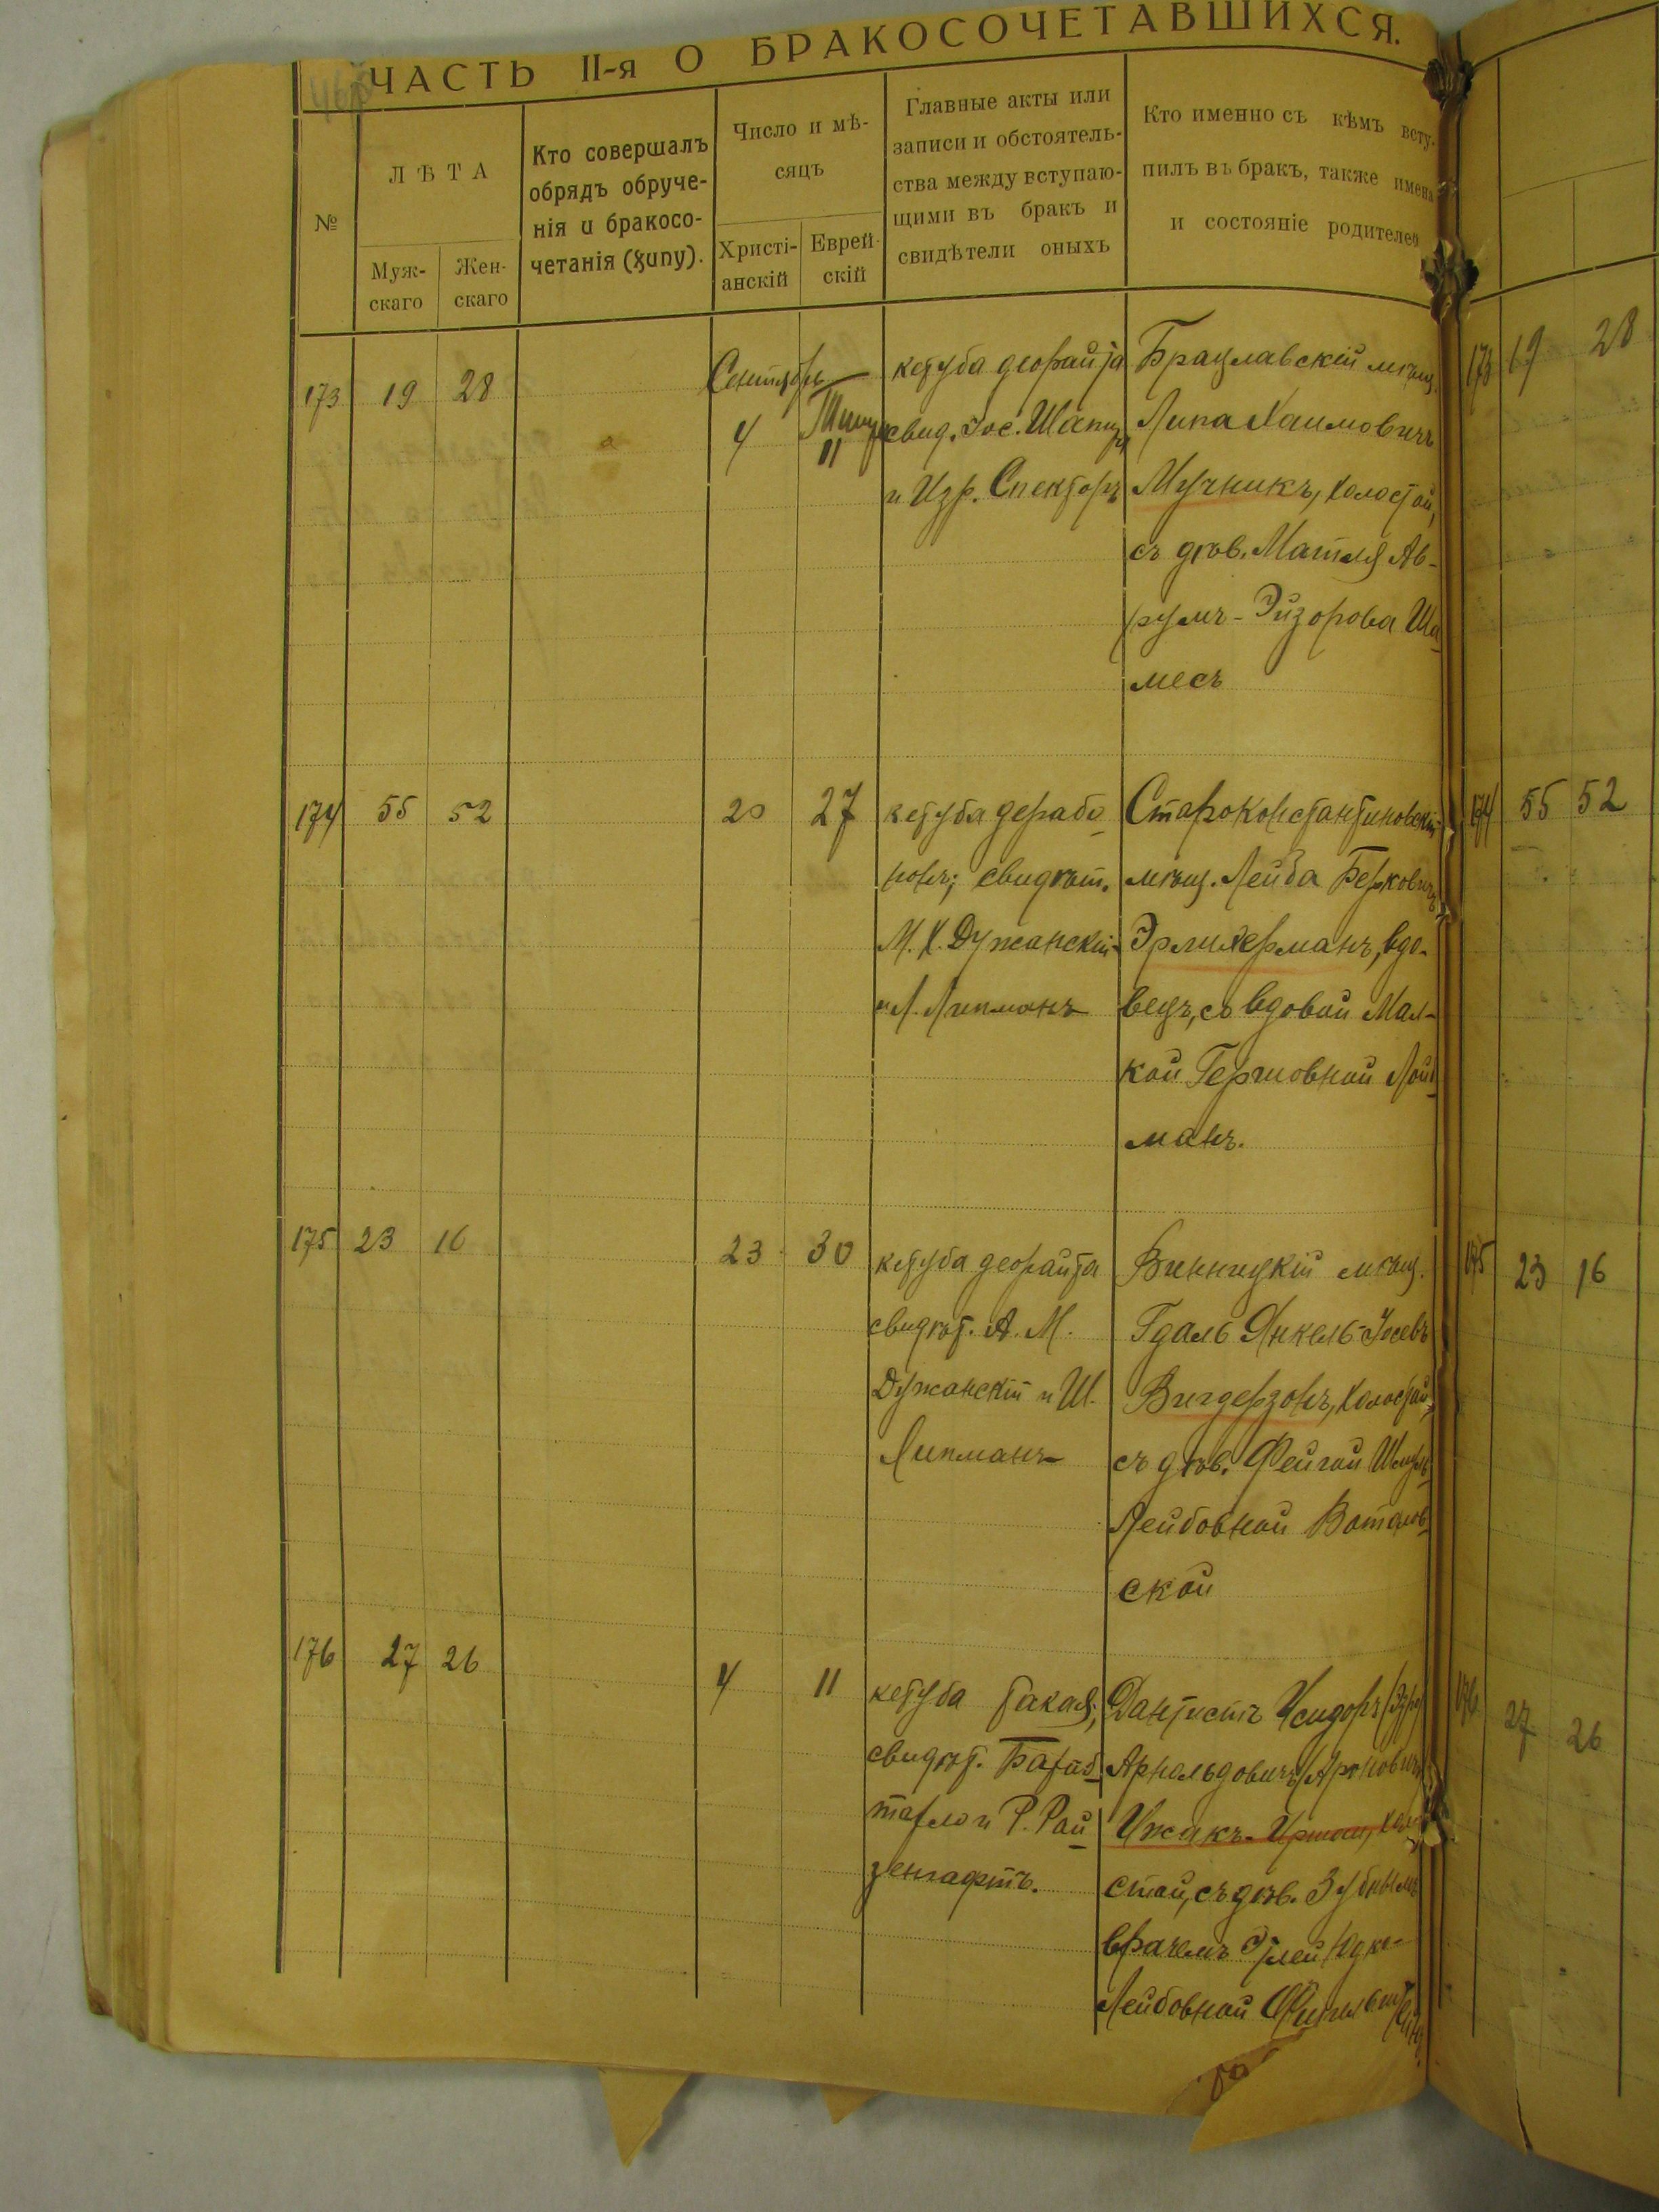 ЧАСТЬ II-я О БРАКОСОЧЕТАВШИХСЯ.
№
ЛѢТА
Муж-
скаго
Жен-
скаго
Кто совершалъ
обрядъ обруче-
нія и бракосо-
четанія (хупу).
Число и мѣ-
сяцъ
Христі-
анскій
Еврей-
скій
Главные акты или
записи и обстоятель-
ства между вступаю-
щими въ бракъ и
свидѣтели оныхъ
Кто именно съ кѣмъ всту-
пилъ въ бракъ, также имена
и состояніе родителей
173
19
28
Сентябрь
4
11
кетуба деорайта
свид. Іос. Шапиро
и Изр. Спекторъ
Брацлавскій мѣщ.
Липа Хаимовичъ
Мучникъ, холостой,
съ дѣв. Матля Ав-
румъ-Эйзорова Ша-
месъ
174
55
52
20
27
кетуба дерабо-
нонъ; свидѣт.
М. Х. Дужанскій
и Л. Липманъ
Староконстантиновскій
мѣщ. Лейба Берковичъ
Эрлихерманъ, вдо-
вецъ, съ вдовой Мал-
кой Гершовной Лойб-
манъ.
175
23
16
23
30
кетуба деорайта
свидѣт. А. М.
Дужанскій и Ш.
Липманъ
Винницкій мѣщ.
Гдаль Янкель-Іосевъ
Вигдерзонъ, холостой,
съ дѣв. Фейгой Шмуль-
Лейбовной
ской
176
27
26
4
11
кетуба такая;
свидѣт.
и Р. Рай-
зенгафтъ.
Дантистъ Исидоръ
Арнольдовичъ (Ароновичъ)
Ижикъ- холо-
стой, съ дѣв. Зубнымъ
врачемъ Юдко-
Лейбовной
173
19
28
174
55
52
175
23
16
176
27
26